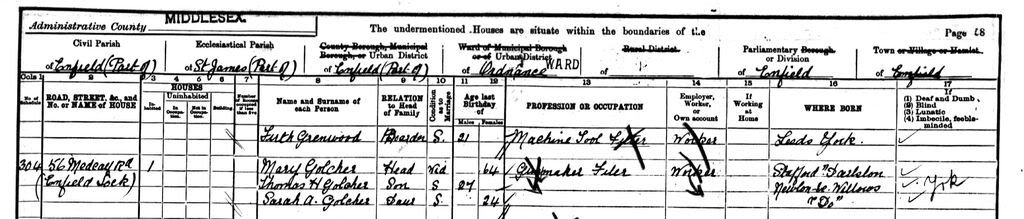 Administrative County MIDDLESEX
The undermentioned Houses are situate within the boundaries of the
Page 68
Civil Parish
Ecclesiastical Parish
County Borough, Municipal Borough, or Urban District
Ward of Municipal Borough or of Urban District
Rural District
Parliamentary Borough or Division
Town or Village or Hamlet
of Enfield (Part of)
of St James (Part of)
of Enfield (Part of)
of Ordnance WARD
of
of Enfield
of Enfield
Cols 1 2 3 4 5 6 7 8 9 10 11 12 13 14 15 16 17
No. of Schedule
ROAD, STREET, &c., and No. or NAME of HOUSE
HOUSES
Inhabited
Uninhabited
In Occupation
Not in Occupation
Building
Name and Surname of each Person
RELATION to Head of Family
Condition as to Marriage
Age last Birthday of
Males
Females
PROFESSION OR OCCUPATION
Employer, Worker, or Own account
If Working at Home
WHERE BORN
If
(1) Deaf and Dumb
(2) Blind
(3) Lunatic
(4) Imbecile, feeble-minded
Firth Grenwood Boarder S. 21 Machine Tool Fitter Worker Leeds York.
304 56 Medcay Rd 1 Mary Golcher Head Wid 64 Gunmaker Filer Worker Stafford Darlston
(Enfield Lock) Thomas H Golcher Son S 27 Newton Le Willows York
Sarah A. Golcher Daur S. 24 " Do "